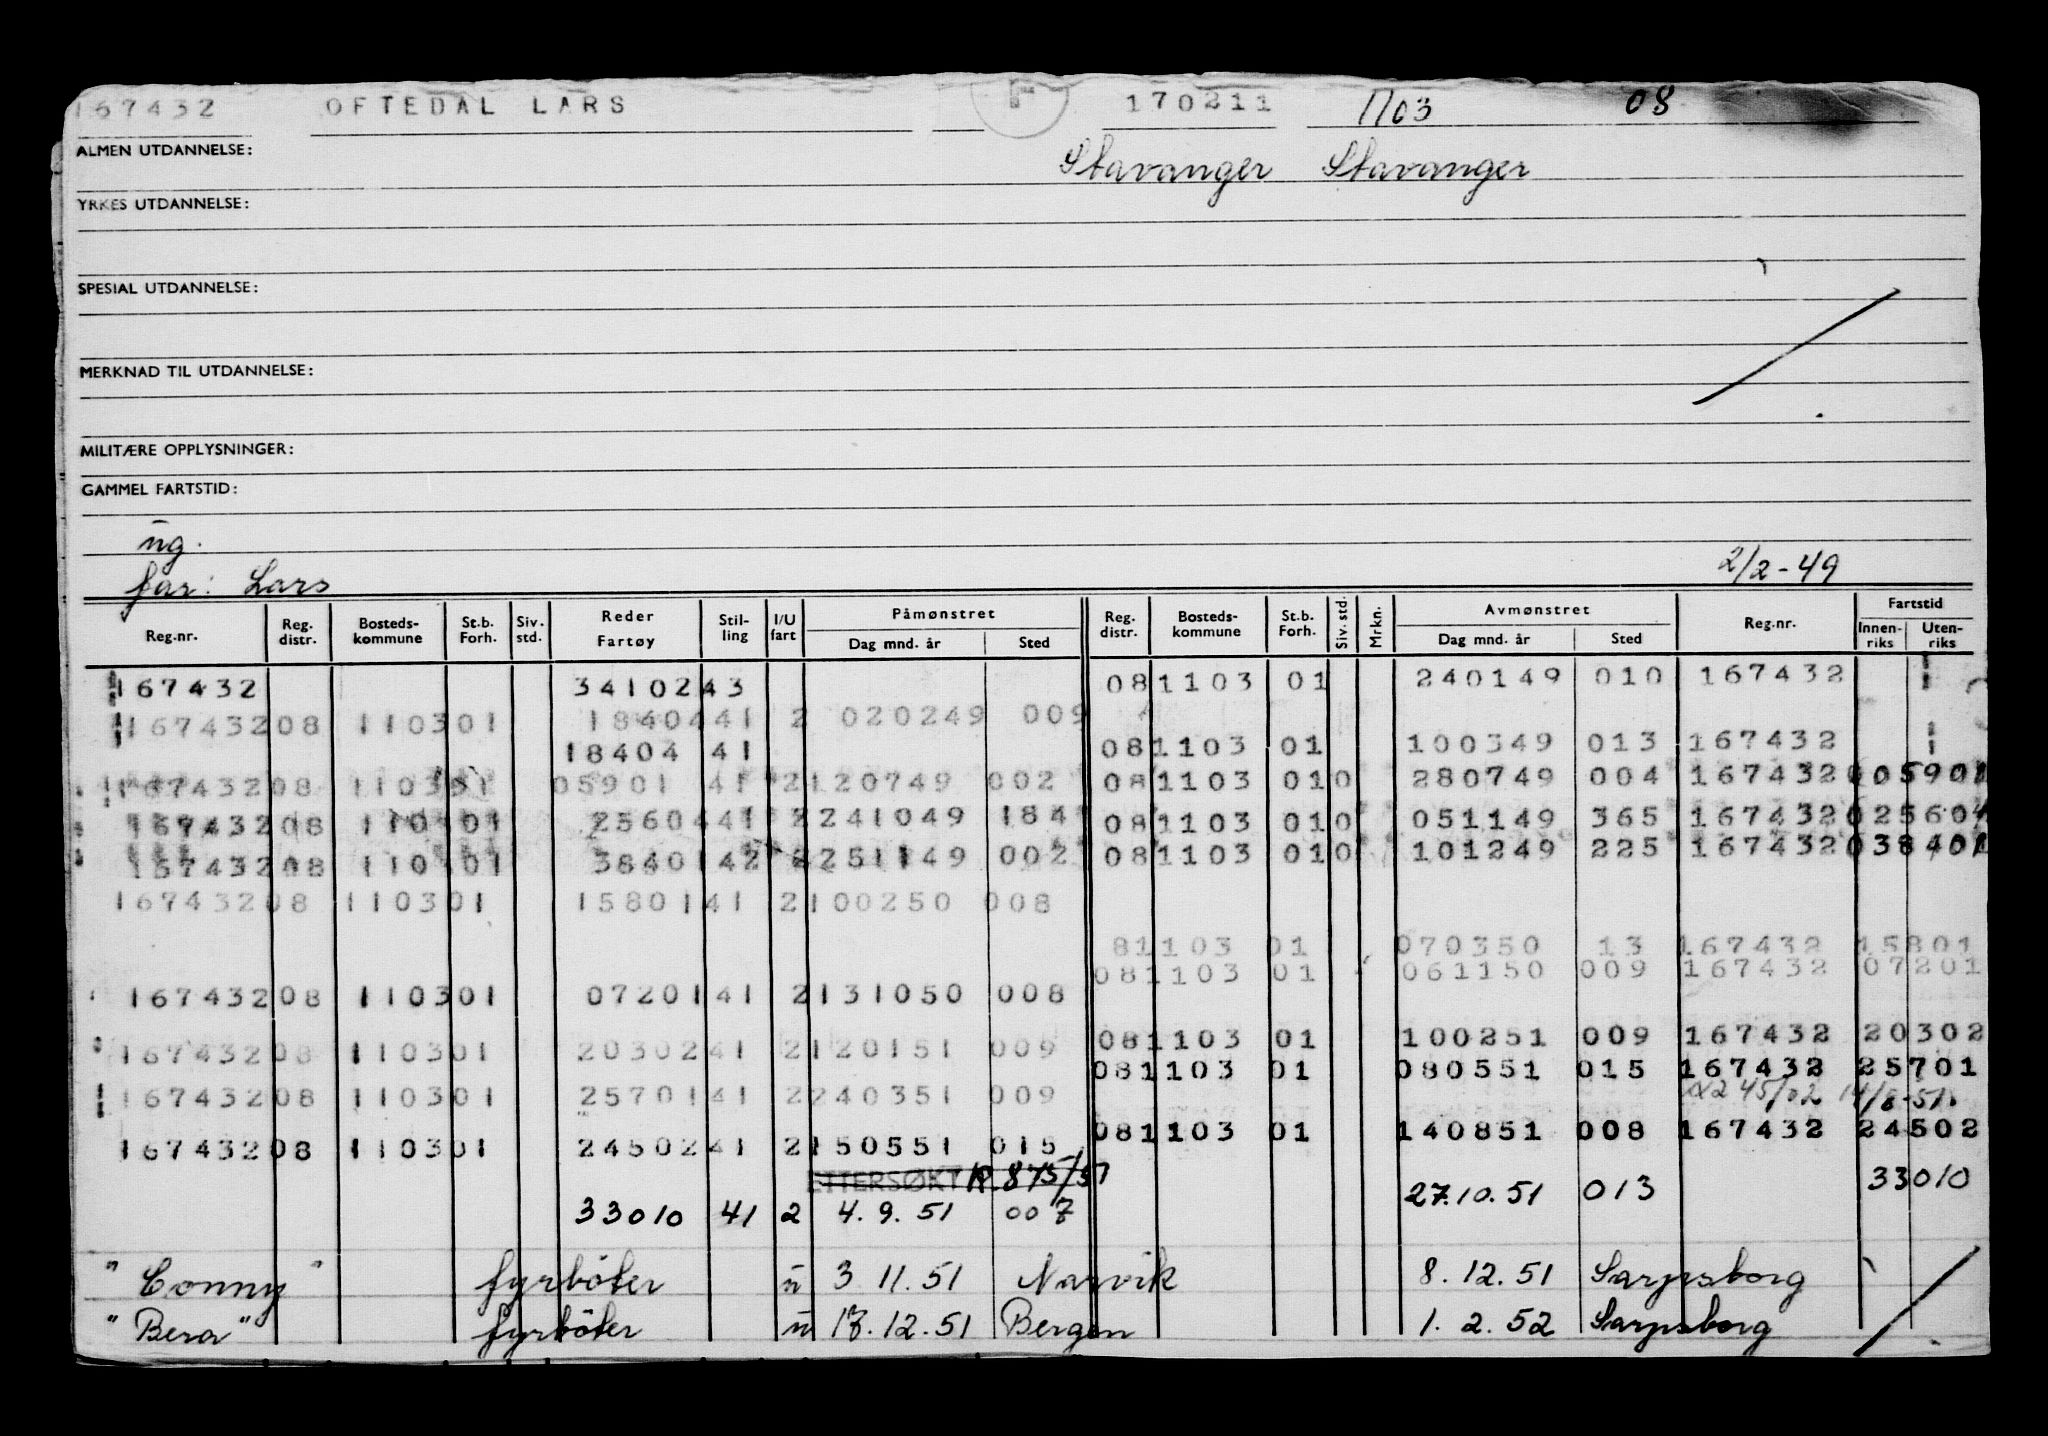 167432 OFTEDAL LARS F 170211 1103 08
ALMEN UTDANNELSE: Stavanger Stavanger
YRKES UTDANNELSE:
SPESIAL UTDANNELSE:
MERKNAD TIL UTDANNELSE:
MILITÆRE OPPLYSNINGER:
GAMMEL FARTSTID:
ug.
far: Lars 2/2-49
Reg.nr. Reg. distr. Bosteds-kommune St.b. Forh. Siv. std. Reder Fartøy Stil-ling I/U fart Påmønstret Dag mnd. år Sted Reg. distr. Bosteds-kommune St.b. Forh. Siv. std. Mrkn. Avmønstret Dag mnd. år Sted Reg.nr. Fartstid Innen-riks Uten-riks
167432 3410243 081103 01 240149 010 167432
16743208 110301 1840441 2 020249 009
18404 41 081103 01 100349 013 167432
16743208 110301 05901 41 2120749 002 081103 010 280749 004 167432005901
16743208 110301 2560441 2241049 184 081103 010 051149 365 167432025604
16743208 110301 3840142 2251149 002 081103 010 101249 225 167432038401
16743208 110301 1580141 2100250 008
81103 01 070350 13 167432 15801
081103 01 061150 009 167432 07201
16743208 110301 0720141 2131050 008
081103 01 100251 009 167432 20302
16743208 110301 2030241 2120151 009
081103 01 080551 015 167432 25701
16743208 110301 2570141 2240351 009 245/02 14/8-51.
081103 01 140851 008 167432 24502
16743208 110301 2450241 2150551 015
ETTERSØKT R. 875/51
27.10.51 013 33010
33010 41 2 4.9.51 007
"Conny" fyrbøter u 3 11.51 Narvik 8.12.51 Sarpsborg
"Bera" fyrbøter u 17.12.51 Bergen 1.2.52 Sarpsborg